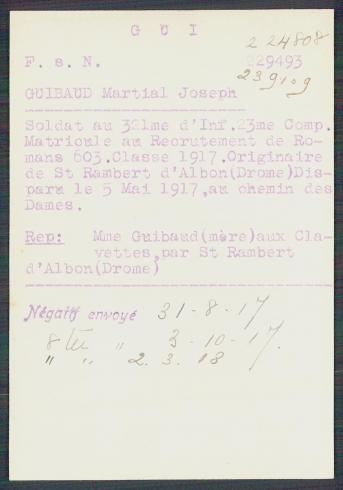 G U I
224808
F. s. N. 229493
239109
GUIBAUD Martial Joseph
Soldat au 321me d'Inf.23me Comp.
Matricule au Recrutement de Ro-
mans 603.Classe 1917.Originaire
de St Rambert d'Albon(Drome)Dis-
paru le 5 Mai 1917,au chemin des
Dames.
Rep: Mme Guibaud(mère)aux Cla-
vettes,par St Rambert
d'Albon(Drome)
Négatif envoyé 31-8-17
" 3-10-17.
" " 2.3.18